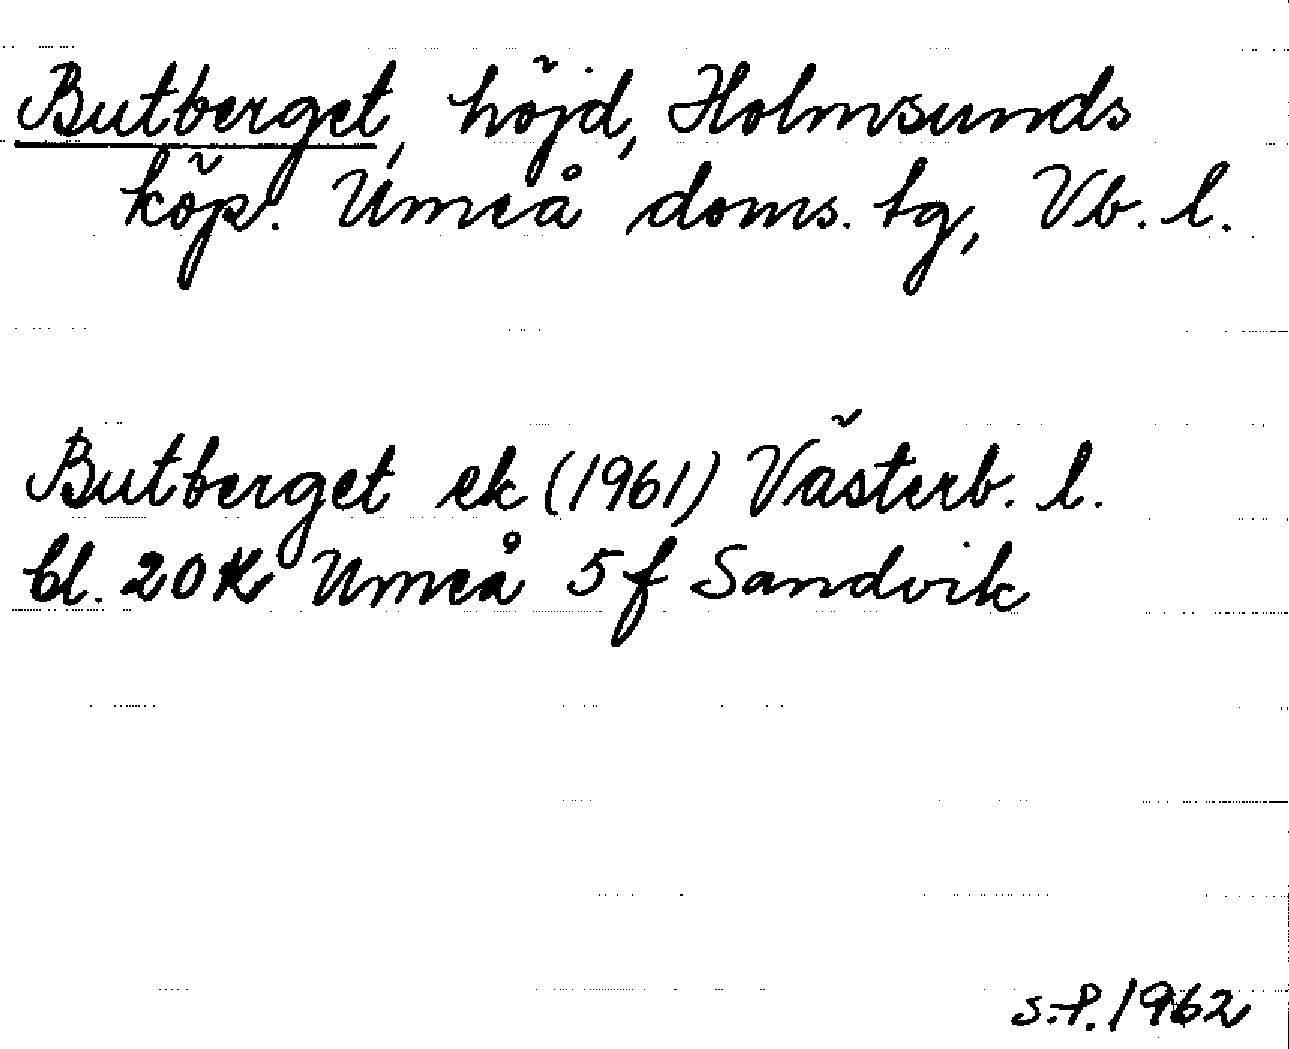 Butberget, höjd, Holmsunds
köp. Umeå doms. tg, Vb. l.
Butberget ek (1961) Västerb. l.
bl. 20K Umeå 5f Sandvik
S.P. 1962